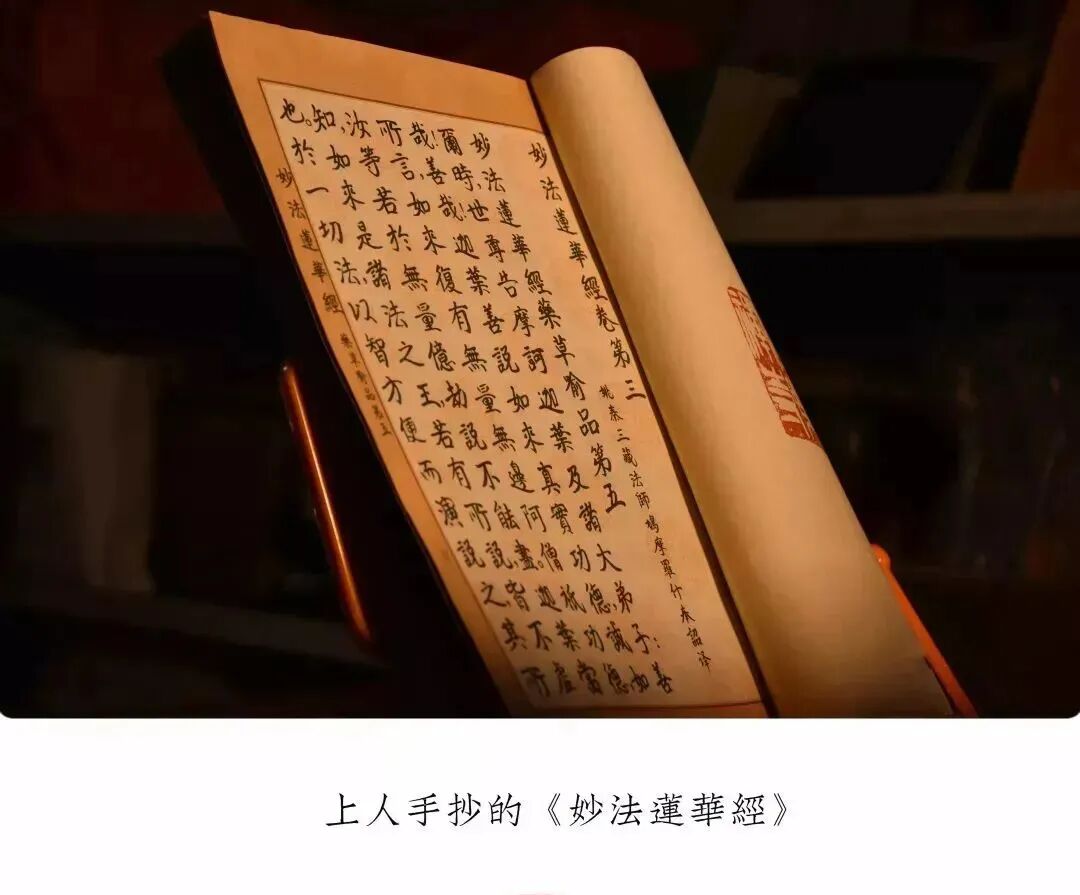 妙法蓮華經卷第三
姚秦三藏法師鳩摩羅什奉詔译
妙法蓮華經藥草喻品第五
爾時,世尊告摩訶迦葉及諸大弟子:善
哉!善哉!迦葉善說如來真實功德,誠如
所言,如來復有無量無邊阿僧祇功德
汝等若於無量億劫說不能盡。迦葉當
知,如來是諸法之王,若有所說,皆不虛
也。於一切法,以智方便而演說之其所
妙法蓮華經 藥草喻品第五
上人手抄的《妙法蓮華經》